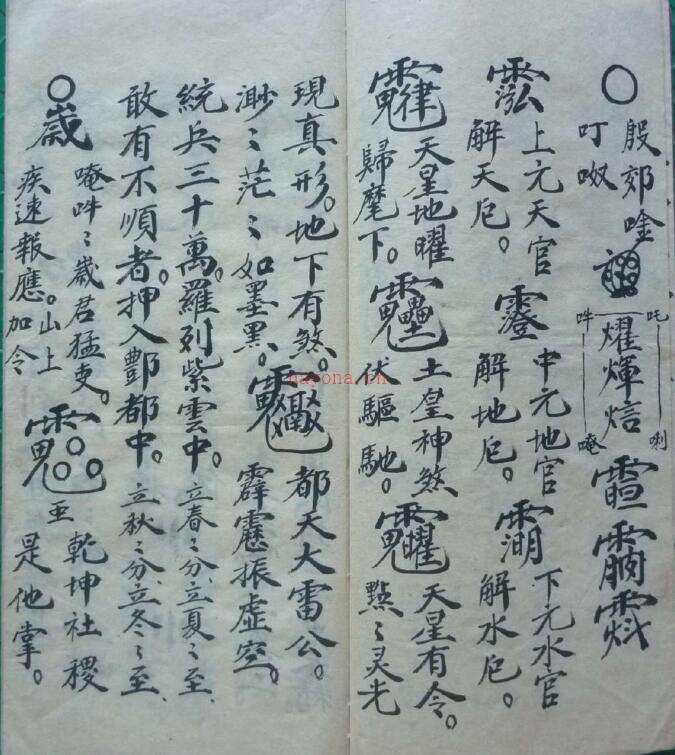 殷郊唫
叮呶
吽 吒
耀煇焙
唵 唎
上元天官
解天厄。
中元地官
解地厄。
下元水官
解水厄。
天星地曜
歸麾下。
土皇神煞
伏驅馳。
天星有令。
點〻灵光
現真形。地下有煞。
渺〻茫〻如墨黑。
都天大雷公。
霹靂振虛空。
統兵三十萬。羅列紫雲中。立春〻分、立夏〻至、
敢有不順者。押入酆都中。立秋〻分、立冬〻至、
歲
唵吽〻歲君猛吏。
疾速報應。山上
加令
至
乾坤社稷
是他掌。
nayona.cn